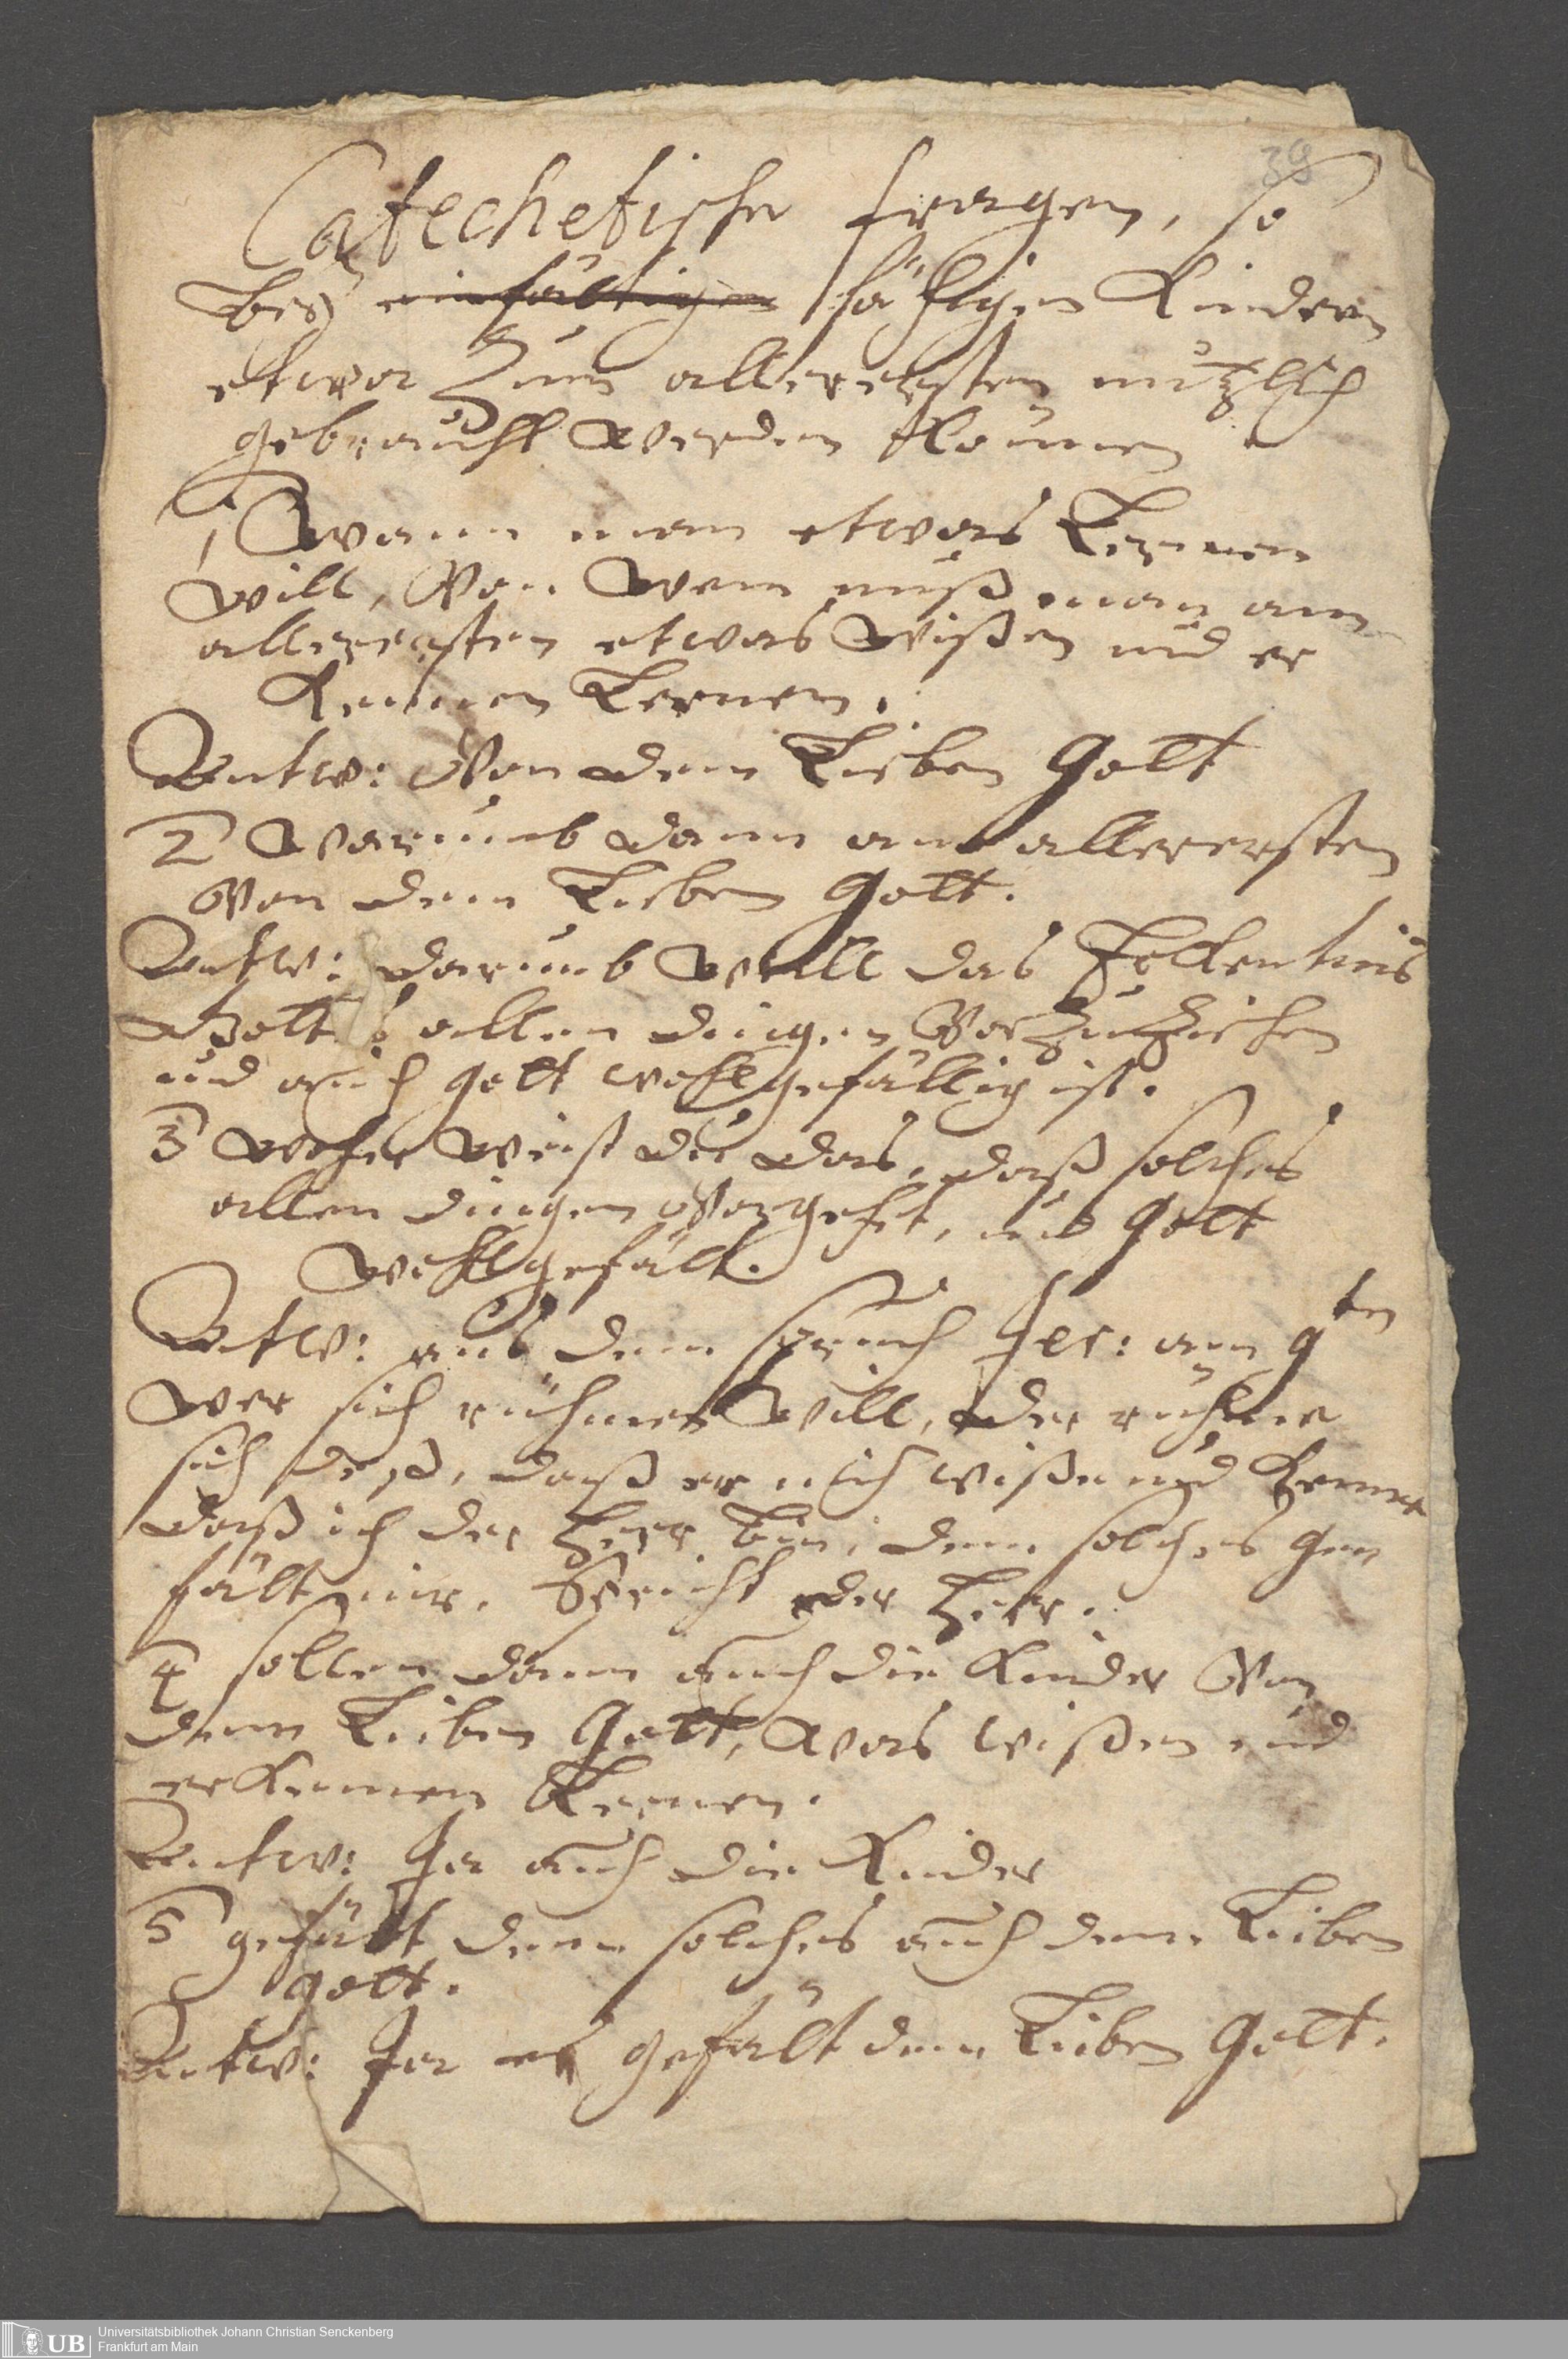 39
Catechetische fragen, so
bey einfältigen fähigen Kindern
etwa Zum allerersten nützlich
gebraucht werden können
1 Wann man etwas Lernen
will, Von wem muß man am
allerersten etwas wißen und er
Kennen Lernen.
Antw: Von dem Lieben Gott
2 Warumb dann am allerersten
Von dem Lieben Gott.
Antw: darumb weill das Erkentnis
Gottes allen dingen Vorzuziehen
und auch Gott wohlgefällig ist.
3 woher weist du das, daß solches
allen dingen Vorgeht, und Gott
wohlgefält.
Antw: aus dem spruch Jer: am 9ten
wer sich rühmen will, der rühme
sich deß, daß er mich wiße und Kenne
daß ich der Herr bin, denn solches ge
fält mir. Spricht der Herr.
4 sollen dann auch die Kinder Von
dem Lieben Gott, was wißen und
erkennen Lernen.
Antw: Ja auch die Kinder
5 gefält denn solches auch dem Lieben
gott.
Antw: Ja es gefält dem Lieben Gott.
UB Universitätsbibliothek Johann Christian Senckenberg
Frankfurt am Main